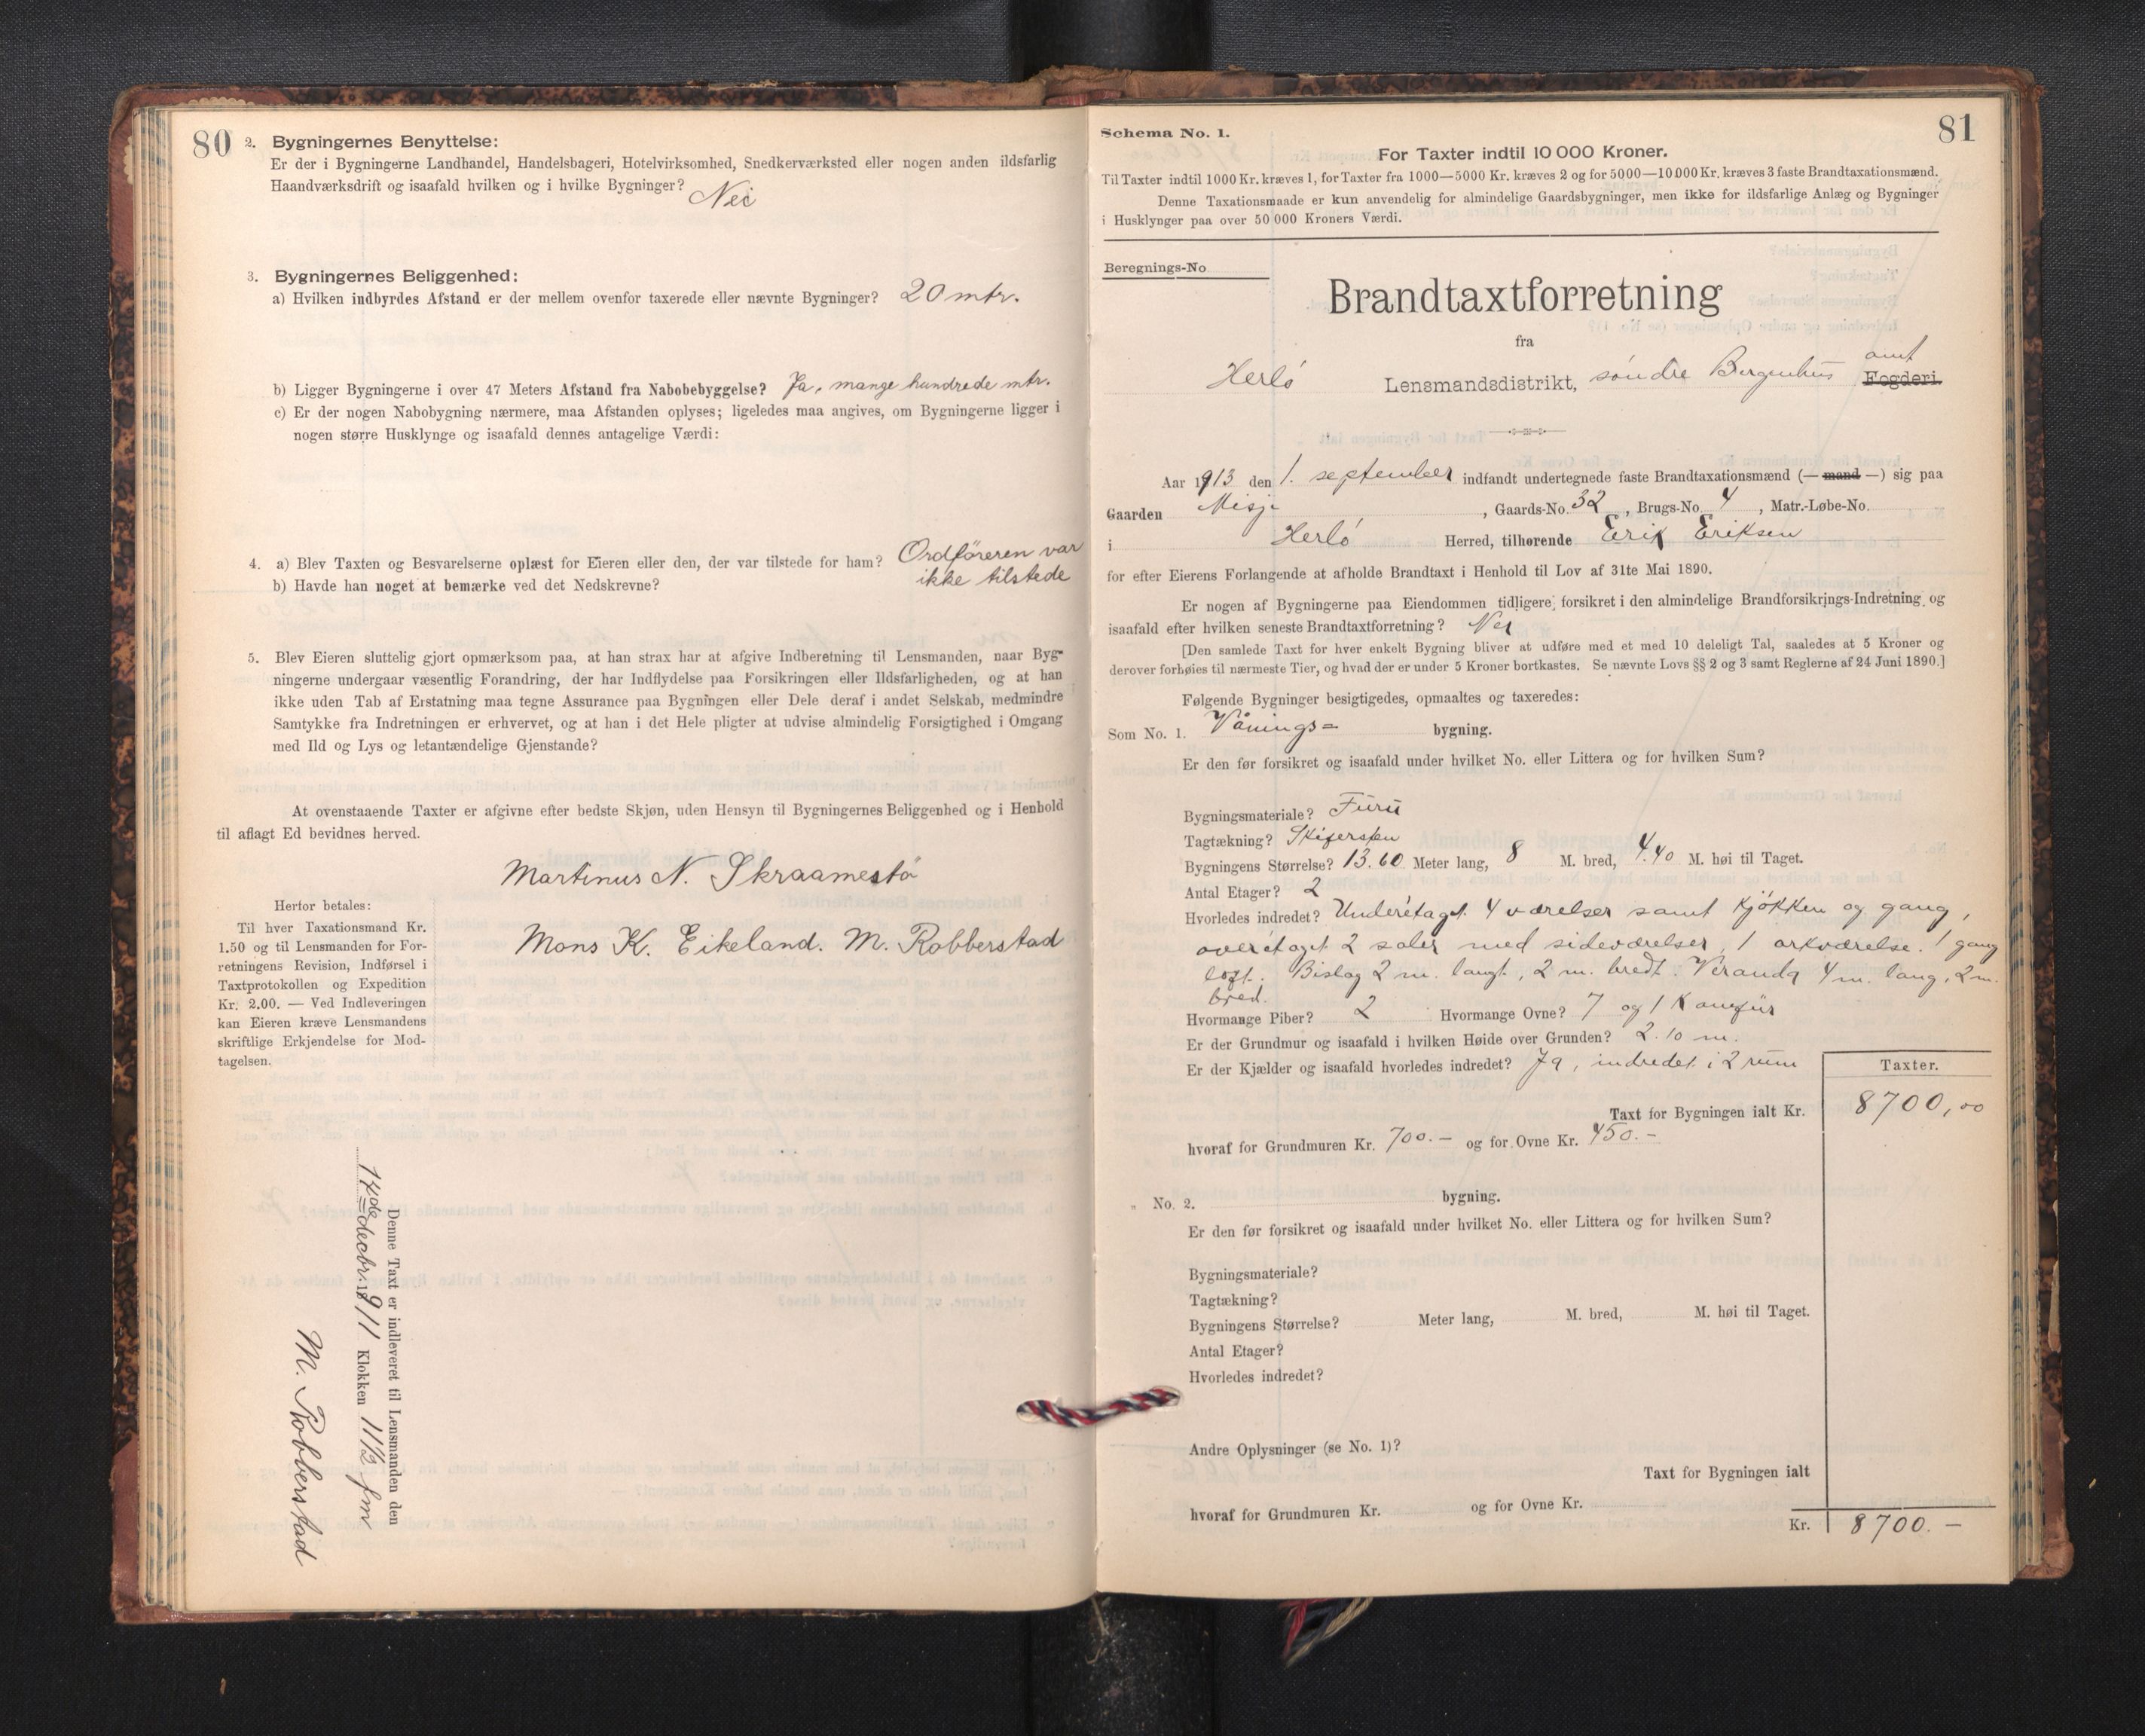 80
2. Bygningernes Benyttelse:
Er der i Bygningerne Landhandel, Handelsbageri, Hotelvirksomhed, Snedkerværksted eller nogen anden ildsfarlig
Haandværksdrift og isaafald hvilken og i hvilke Bygninger? Nei
3. Bygningernes Beliggenhed:
a) Hvilken indbyrdes Afstand er der mellem ovenfor taxerede eller nævnte Bygninger? 20 mtr.
b) Ligger Bygningerne i over 47 Meters Afstand fra Nabobebyggelse? Ja, mange hundrede mtr.
c) Er der nogen Nabobygning nærmere, maa Afstanden oplyses; ligeledes maa angives, om Bygningerne ligger i
nogen større Husklynge og isaafald dennes antagelige Værdi:
4. a) Blev Taxten og Besvarelserne oplæst for Eieren eller den, der var tilstede for ham? Ordføreren var
b) Havde han noget at bemærke ved det Nedskrevne? ikke tilstede
5. Blev Eieren sluttelig gjort opmærksom paa, at han strax har at afgive Indberetning til Lensmanden, naar Byg-
ningerne undergaar væsentlig Forandring, der har Indflydelse paa Forsikringen eller Ildsfarligheden, og at han
ikke uden Tab af Erstatning maa tegne Assurance paa Bygningen eller Dele deraf i andet Selskab, medmindre
Samtykke fra Indretningen er erhvervet, og at han i det Hele pligter at udvise almindelig Forsigtighed i Omgang
med Ild og Lys og letantændelige Gjenstande?
At ovenstaaende Taxter er afgivne efter bedste Skjøn, uden Hensyn til Bygningernes Beliggenhed og i Henhold
til aflagt Ed bevidnes herved.
Martinus N. Skraamestø
Mons K. Eikeland. M. Robberstad
Herfor betales:
Til hver Taxationsmand Kr.
1.50 og til Lensmanden for For-
retningens Revision, Indførsel i
Taxtprotokollen og Expedition
Kr. 2.00. — Ved Indleveringen
kan Eieren kræve Lensmandens
skriftlige Erkjendelse for Mod-
tagelsen.
Denne Taxt er indleveret til Lensmanden den
14de decbr. 1911 Klokken 11½ fm
M. Robberstad
81
Schema No. 1.
For Taxter indtil 10 000 Kroner.
Til Taxter indtil 1000 Kr. kræves 1, for Taxter fra 1000—5000 Kr. kræves 2 og for 5000—10000 Kr. kræves 3 faste Brandtaxationsmænd.
Denne Taxationsmaade er kun anvendelig for almindelige Gaardsbygninger, men ikke for ildsfarlige Anlæg og Bygninger
i Husklynger paa over 50 000 Kroners Værdi.
Beregnings-No
Brandtaxtforretning
fra
Herlö Lensmandsdistrikt, söndre Bergenhus amt Fogderi.
Aar 1913 den 1. september indfandt undertegnede faste Brandtaxationsmænd (— mand —) sig paa
Gaarden Misje, Gaards-No. 32, Brugs-No. 4, Matr.-Løbe-No.
i Herlö Herred, tilhørende Erik Eriksen
for efter Eierens Forlangende at afholde Brandtaxt i Henhold til Lov af 31te Mai 1890.
Er nogen af Bygningerne paa Eiendommen tidligere forsikret i den almindelige Brandforsikrings-Indretning og
isaafald efter hvilken seneste Brandtaxtforretning? Nei
[Den samlede Taxt for hver enkelt Bygning bliver at udføre med et med 10 deleligt Tal, saaledes at 5 Kroner og
derover forhøies til nærmeste Tier, og hvad der er under 5 Kroner bortkastes. Se nævnte Lovs §§ 2 og 3 samt Reglerne af 24 Juni 1890.]
Følgende Bygninger besigtigedes, opmaaltes og taxeredes:
Som No. 1. Vånings= bygning.
Er den før forsikret og isaafald under hvilket No. eller Littera og for hvilken Sum?
Bygningsmateriale? Furu
Tagtækning? Skifersten
Bygningens Størrelse? 13.60 Meter lang, 8 M. bred, 4.40 M. høi til Taget.
Antal Etager? 2
Hvorledes indredet? Underétaget 4 værelser samt kjökken og gang,
overétaget 2 saler med sideværelser, 1 arkværelse. 1 gang
loft. Bislag 2 m. langt, 2 m. bredt. Veranda 4 m. lang, 2 m.
bred.
Hvormange Piber? 2 Hvormange Ovne? 7 og 1 Komfür
Er der Grundmur og isaafald i hvilken Høide over Grunden? 2.10 m.
Er der Kjælder og isaafald hvorledes indredet? Ja, indredet i 2 rum
Taxter.
Taxt for Bygningen ialt Kr. 8700,00
hvoraf for Grundmuren Kr. 700.- og for Ovne Kr. 450.-
„ No. 2. bygning.
Er den før forsikret og isaafald under hvilket No. eller Littera og for hvilken Sum?
Bygningsmateriale?
Tagtækning?
Bygningens Størrelse? Meter lang, M. bred, M. høi til Taget.
Antal Etager?
Hvorledes indredet?
Andre Oplysninger (se No. 1)?
Taxt for Bygningen ialt
hvoraf for Grundmuren Kr. og for Ovne Kr.
Kr. 8700.-